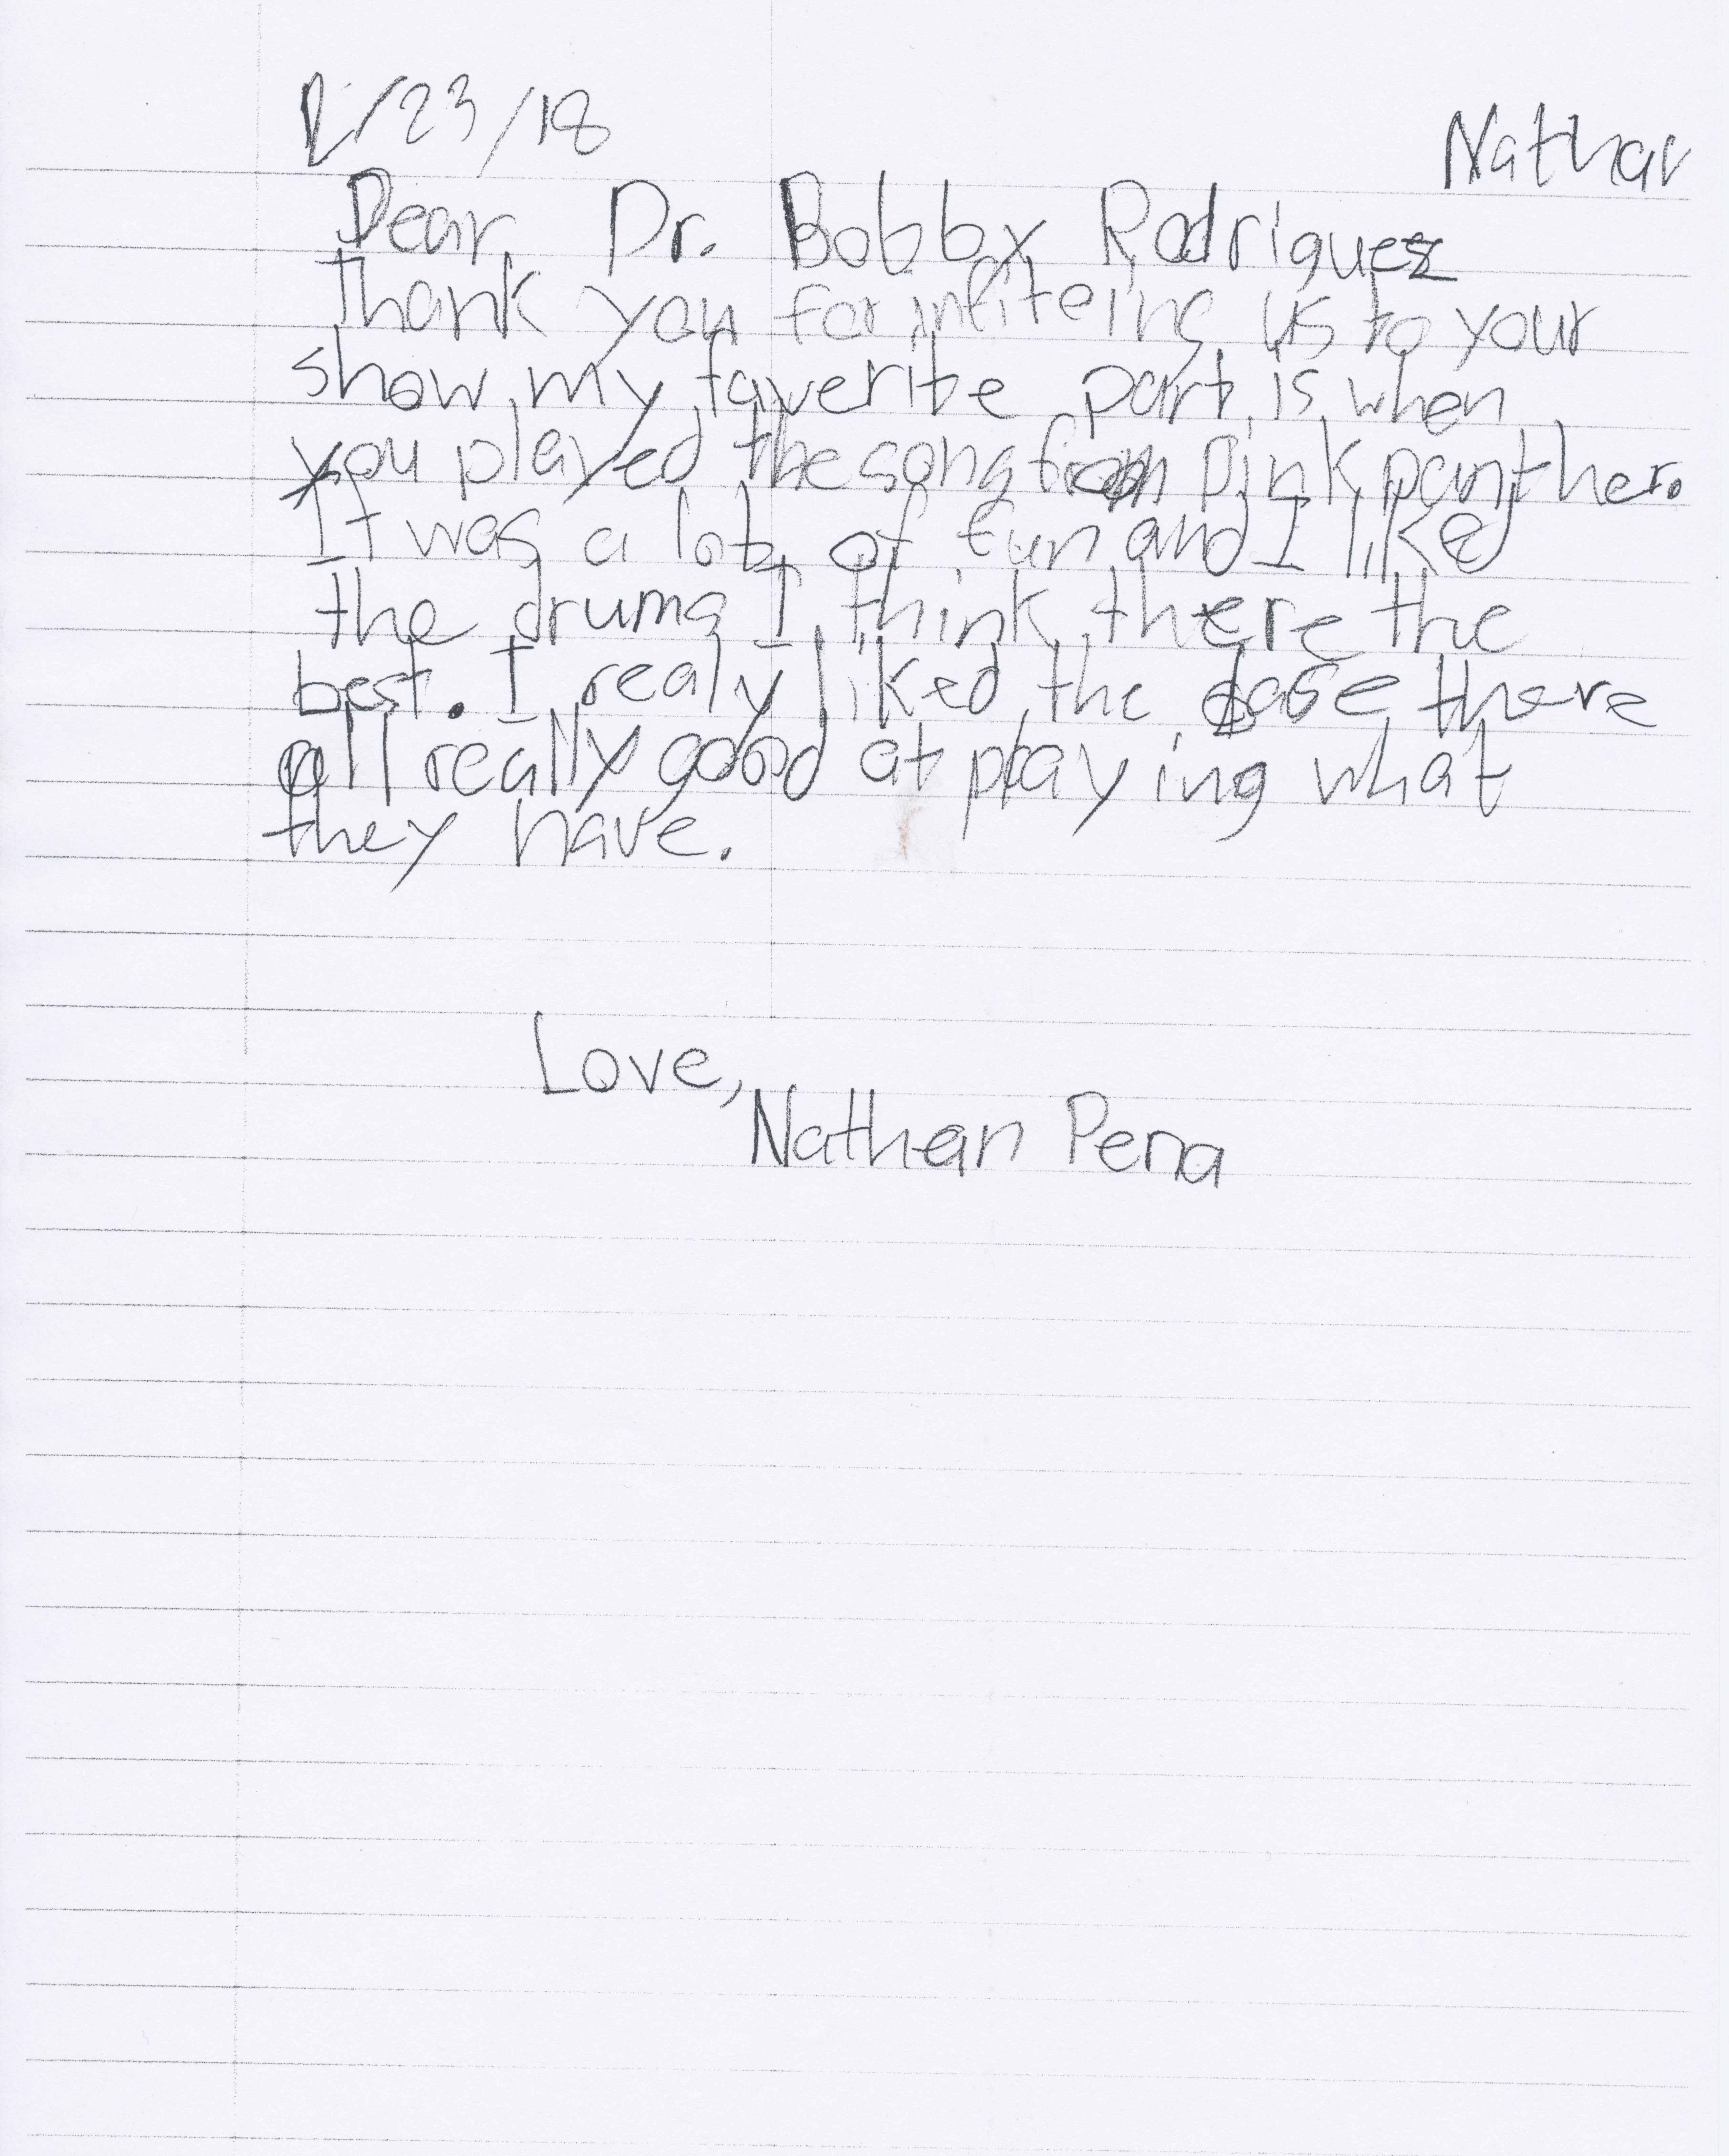 2/23/18
Nathan
Dear Dr. Bobby Rodriguez
Thank you for infiteing us to your
show my faverite part is when
you played the song from pink panther.
It was a lot of fun and I liked
the drums I think there the
best. I realy liked the base there
all really good at playing what
they have.
Love,
Nathan Pena